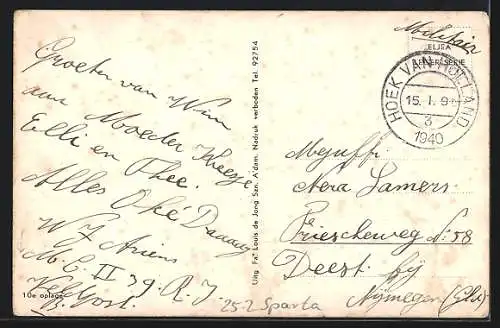 Groeten van Wim
aan Moeder Kneesje
Elli en Thee.
Alles Oké Daaag
W J Ariens
M.C. II 39. R.J.
Veldpost.
10e oplage
Uitg. Fa Louis de Jong Szn. A'dam. Nadruk verboden Tel. 92754
Militair
ELJSA
HOEK VAN HOLLAND
15. I. 9
3
1940
Mejuffr.
Nera Lamers.
Driescheweg No. 58
Deest. bij
Nijmegen (Gld.)
252 Sparta